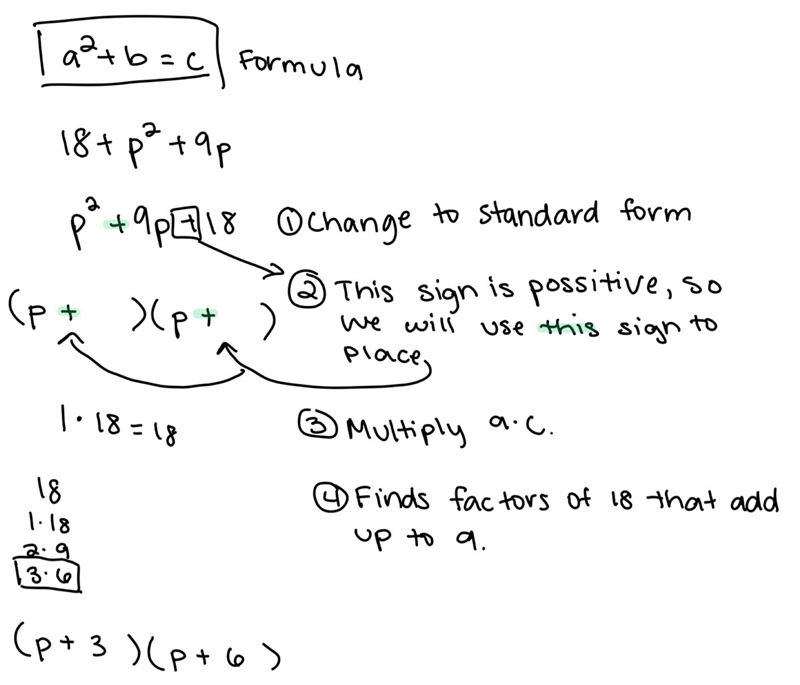 a² + b = c Formula
18 + p² + 9p
p² + 9p + 18 ① Change to standard form
② This sign is possitive, so
(p + )(p + ) we will use this sign to
place
1 · 18 = 18 ③ Multiply a·c.
18 ④ Finds factors of 18 that add
1·18 up to 9.
2·9
3·6
(p + 3 )(p + 6 )